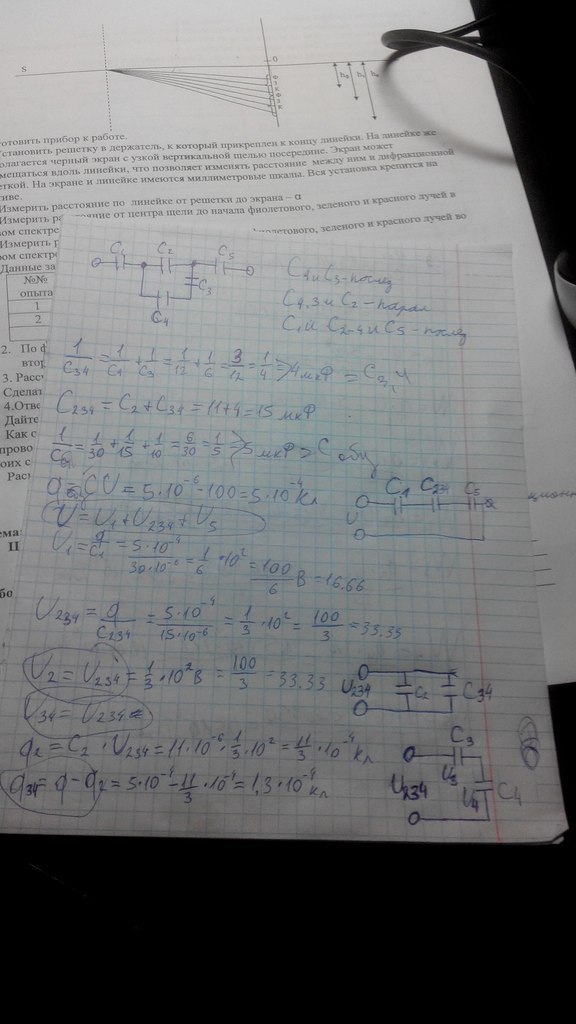 S
0
готовить прибор к работе.
установить решетку в держатель, к который прикреплен к концу линейки. На линейке же
полагается черный экран с узкой вертикальной щелью посередине. Экран может
мещаться вдоль линейки, что позволяет изменять расстояние между ним и дифракционной
еткой. На экране и линейке имеются миллиметровые шкалы. Вся установка крепится на
тиве.
Измерить расстояние по линейке от решетки до экрана – α
Измерить ра стояние от центра щели до начала фиолетового, зеленого и красного лучей в
вом спектре
фиолетового, зеленого и красного лучей во
Измерить р
ром спектре
Данные за
№№
опыта
1
2
2. По ф
втор
3. Расс
Сделат
4.Отве
Дайте
Как с
прово
оих с
Рас
C1 C2 C5
C3
C4
C4 и C3-послед
C4,3 и C2-парал
C1 и C2-4 и C5-послед
1/C34 = 1/C4 + 1/C3 = 1/12 + 1/6 = 3/12 = 1/4 => 4 мкФ = C3,4
C234 = C2 + C34 = 11+4 = 15 мкФ
1/Cоб = 1/30 + 1/15 + 1/10 = 6/30 = 1/5 => 5 мкФ => C общ
q = CU = 5·10^-6·100 = 5·10^-4 Кл
C1 C234 C5
U
U = U1 + U234 + U5
U1 = q/C1 = 5·10^-4/30·10^-6 = 1/6·10^2 = 100/6 В = 16.66
U234 = q/C234 = 5·10^-4/15·10^-6 = 1/3·10^2 = 100/3 = 33.33
U2 = U234 = 1/3·10^2 В = 100/3 = 33.33
U234 C2 C34
U34 = U234 =
q2 = C2·U234 = 11·10^-6·1/3·10^2 = 11/3·10^-4 Кл
q34 = q - q2 = 5·10^-4 - 11/3·10^-4 = 1,3·10^-4 Кл
C3
U3
U234 U4 C4